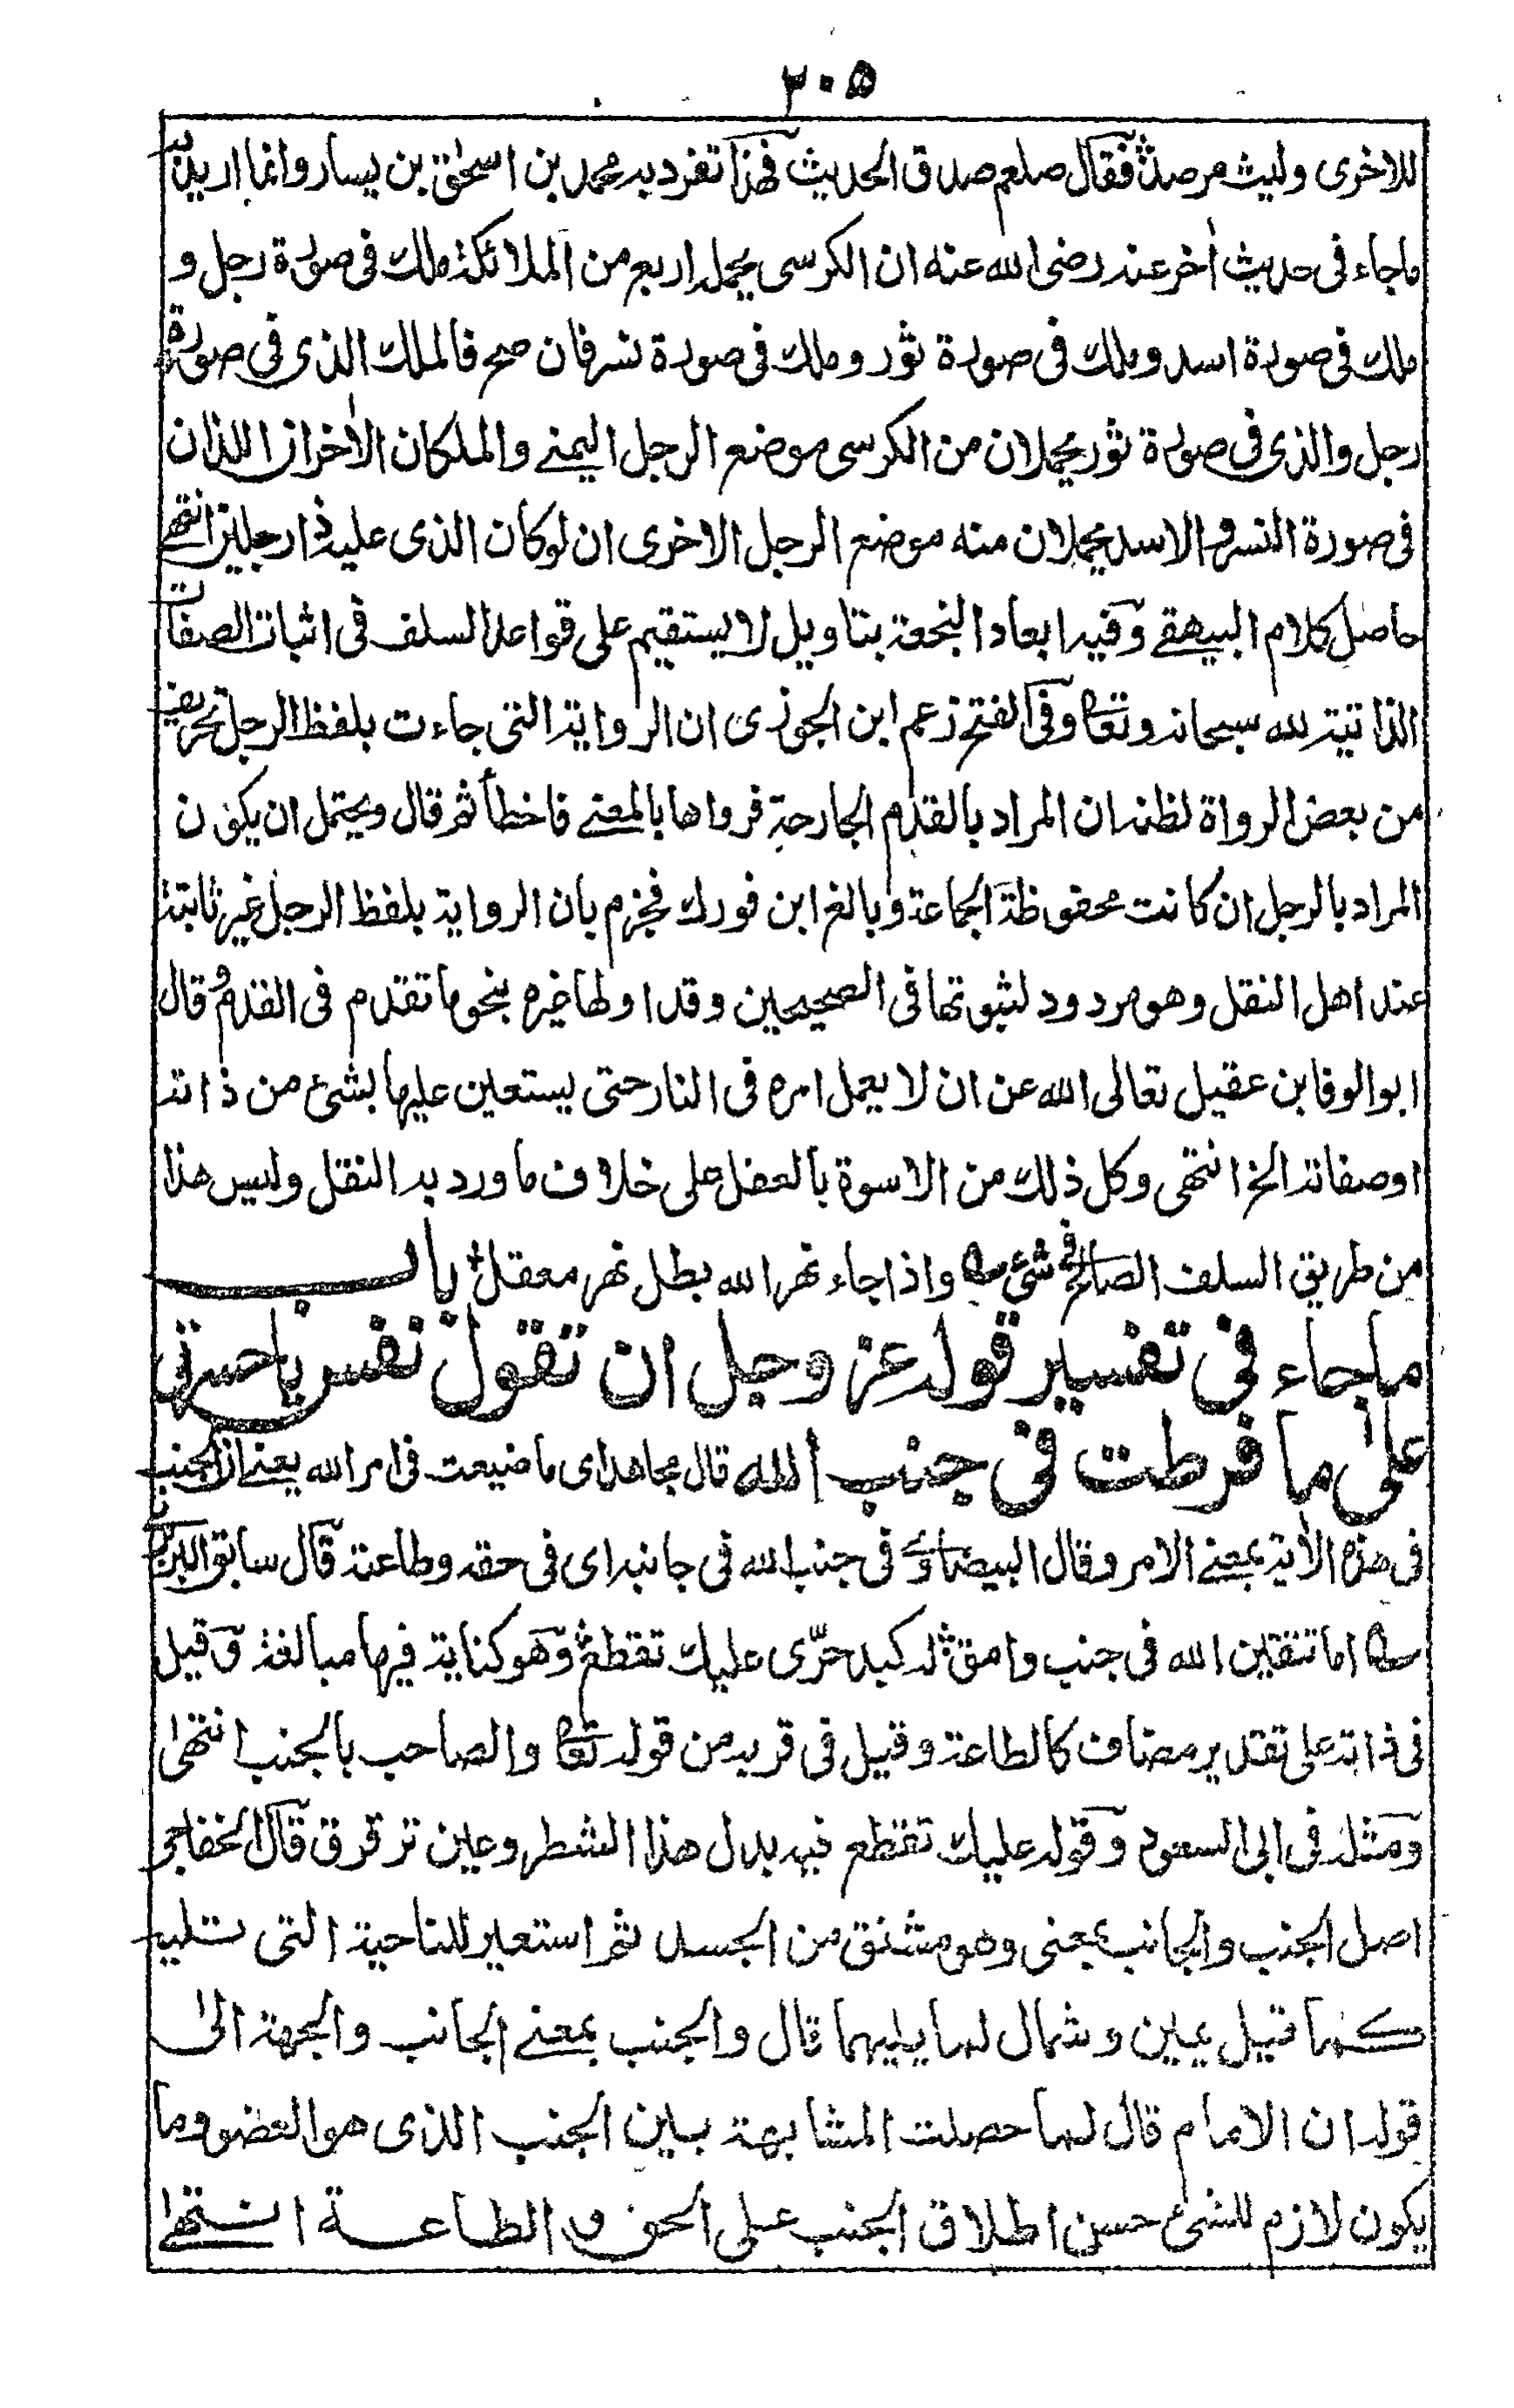 ٣٠٥
للاخرى وليث مرصد فقال صلعم صدق الحديث فهذا تفرد به محمد بن اسحٰق بن يسار وانما اريد به
ما جاء فى حديث اٰخر عنه رضى الله عنه ان الكرسى يحمله اربع من الملائكة ملك فى صورة رجل و
ملك فى صورة اسد وملك فى صورة ثور وملك فى صورة نسر فان صح فالملك الذى فى صورة
رجل والذى فى صورة ثور يحملان من الكرسى موضع الرجل اليمنى والملكان الاٰخران اللذان
فى صورة النسر والاسد يحملان منه موضع الرجل الاخرى ان لو كان الذى عليه ذا رجلين انتهى
حاصل كلام البيهقى وفيه ابعاد النجعة بتاويل لا يستقيم على قواعد السلف فى اثبات الصفات
الذاتية لله سبحانه وتعا وفى الفتح زعم ابن الجوزى ان الرواية التى جاءت بلفظ الرجل تحريف
من بعض الرواة لظنه ان المراد بالقدم الجارحة فرواها بالمعنى فاخطأ ثم قال ويحتمل ان يكون
المراد بالرجل ان كانت محفوظة الجماعة وبالغ ابن فورك فجزم بان الرواية بلفظ الرجل غير ثابتة
عند اهل النقل وهو مردود لثبوتها فى الصحيحين وقد اولها غيره بنحو ما تقدم فى القدم وقال
ابو الوفا بن عقيل تعالى الله عن ان لا يعمل امره فى النار حتى يستعين عليها بشئ من ذاته
او صفاته الخ انتهى وكل ذلك من الاسوة بالعقل على خلاف ما ورد به النقل وليس هذا
من طريق السلف الصالح فى شئ ؎ واذا جاء نهر الله بطل نهر معقل باب
ما جاء فى تفسير قوله عز وجل ان تقول نفس يا حسرتى
على ما فرطت فى جنب الله قال مجاهد اى ما ضيعت فى امر الله يعنى ان الجنب
فى هذه الاٰية بمعنى الامر وقال البيضاوى فى جنب الله فى جانبه اى فى حقه وطاعته قال سابق البربرى
؎ اما تتقين الله فى جنب وامق له كبد حرّى عليك تقطع وهو كناية فيها مبالغة وقيل
فى ذاته على تقدير مضاف كالطاعة وقيل فى قربه من قوله تعا والصاحب بالجنب انتهىٰ
ومثله فى ابى السعود وقوله عليك تقطع فيه بدل هذا الشطر وعين ترقرق قال الخفاجى
اصل الجنب والجانب بمعنى وهو مشتق من الجسد ثم استعير للناحية التى تليه
كما قيل يمين وشمال لما يليهما قال والجنب بمعنى الجانب والجهة الىٰ
قوله ان الامام قال لما حصلت المشابهة بين الجنب الذى هو العضو وما
يكون لازم للشئ حسن اطلاق الجنب على الحق والطاعة انتهىٰ